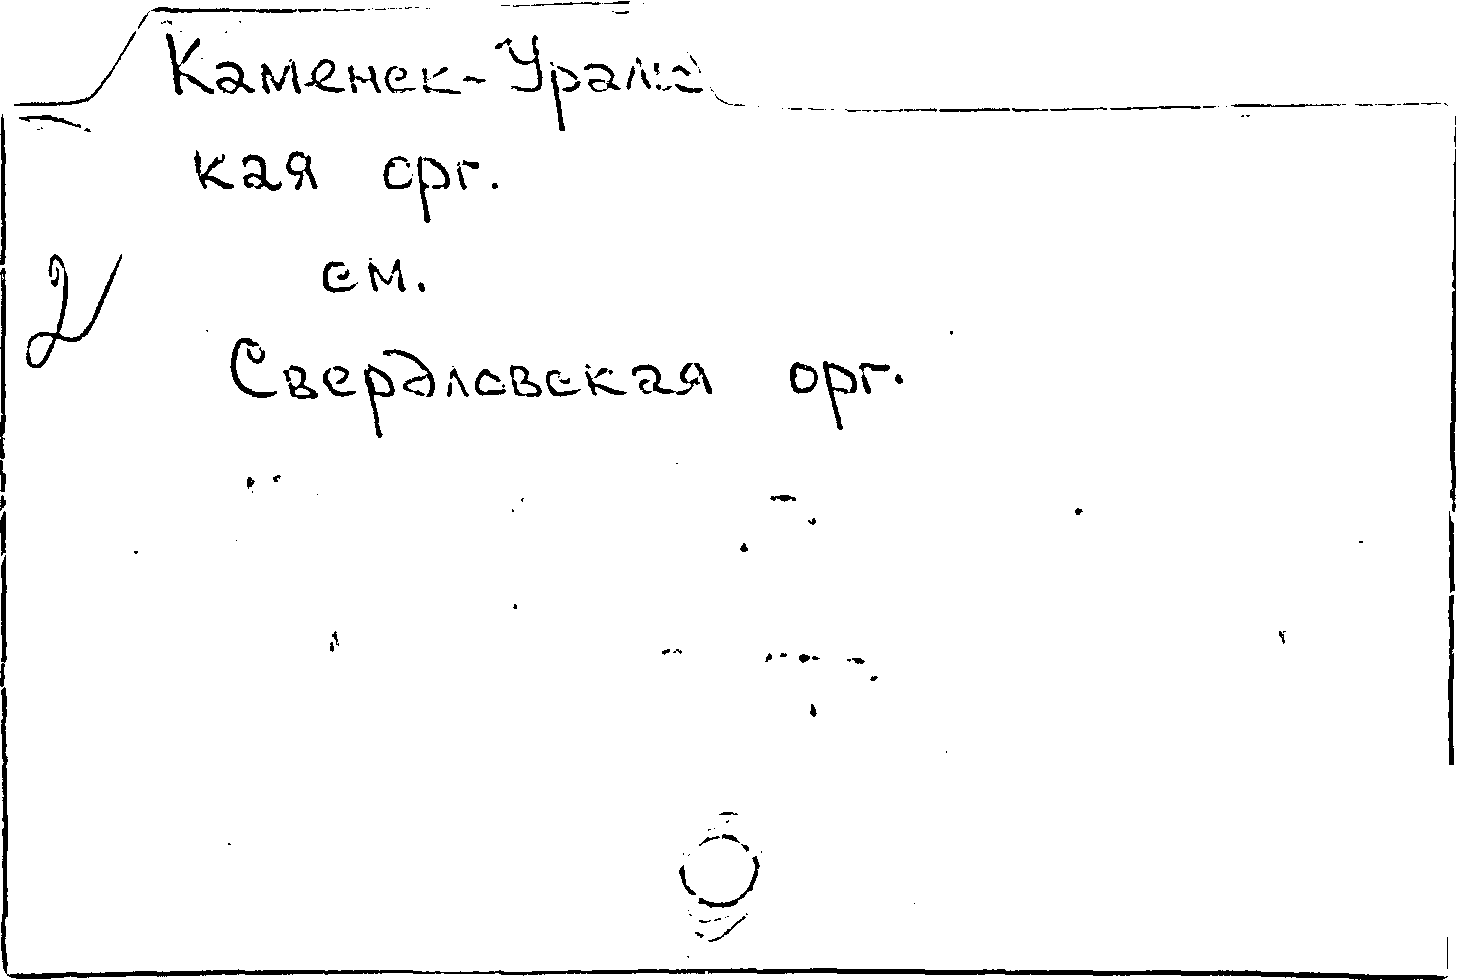 Каменск-Уральс
кая орг.
см.
2
Свердловская орг.